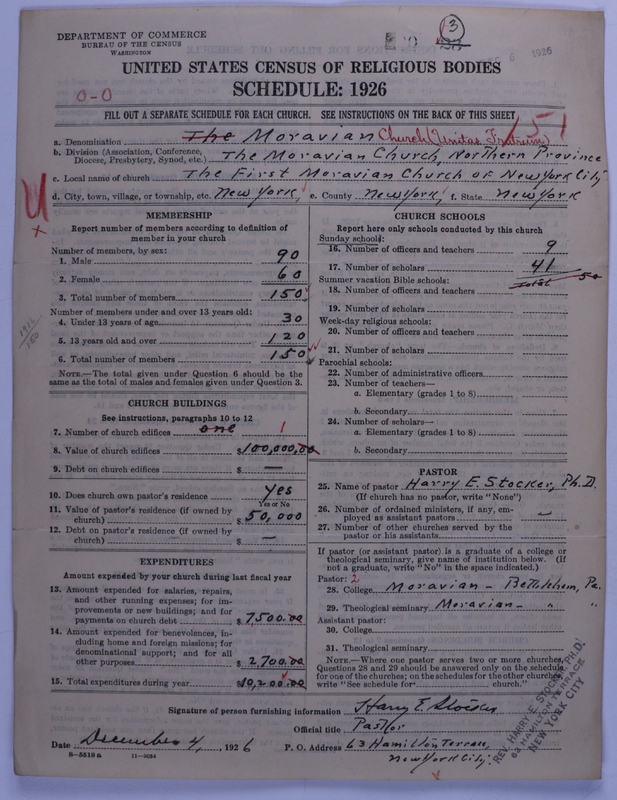 DEPARTMENT OF COMMERCE
BUREAU OF THE CENSUS
WASHINGTON
3
6 1926
UNITED STATES CENSUS OF RELIGIOUS BODIES
SCHEDULE: 1926
0-0
FILL OUT A SEPARATE SCHEDULE FOR EACH CHURCH. SEE INSTRUCTIONS ON THE BACK OF THIS SHEET
151
a. Denomination The Moravian Church (Unitas Fratrum)
b. Division (Association, Conference, Diocese, Presbytery, Synod, etc.) The Moravian Church, Northern Province
c. Local name of church The First Moravian Church of New York City
d. City, town, village, or township, etc. New York, e. County New York, f. State New York
MEMBERSHIP
Report number of members according to definition of
member in your church
Number of members, by sex:
1. Male 90
2. Female 60
3. Total number of members 150
Number of members under and over 13 years old:
4. Under 13 years of age 30
5. 13 years old and over 120
6. Total number of members 150
NOTE.—The total given under Question 6 should be the
same as the total of males and females given under Question 3.
CHURCH BUILDINGS
See instructions, paragraphs 10 to 12
7. Number of church edifices one 1
8. Value of church edifices $100,000.00
9. Debt on church edifices $ —
10. Does church own pastor's residence yes
Yes or No
11. Value of pastor's residence (if owned by
church) $50,000
12. Debt on pastor's residence (if owned by
church) $ —
EXPENDITURES
Amount expended by your church during last fiscal year
13. Amount expended for salaries, repairs,
and other running expenses; for im-
provements or new buildings; and for
payments on church debt $7500.00
14. Amount expended for benevolences, in-
cluding home and foreign missions; for
denominational support; and for all
other purposes $2,700.00
15. Total expenditures during year 10,200.00
CHURCH SCHOOLS
Report here only schools conducted by this church
Sunday schools:
16. Number of officers and teachers 9
17. Number of scholars 41
Total 50
Summer vacation Bible schools:
18. Number of officers and teachers
19. Number of scholars
Week-day religious schools:
20. Number of officers and teachers
21. Number of scholars
Parochial schools:
22. Number of administrative officers
23. Number of teachers—
a. Elementary (grades 1 to 8)
b. Secondary
24. Number of scholars—
a. Elementary (grades 1 to 8)
b. Secondary
PASTOR
25. Name of pastor Harry E. Stocker, Ph.D.
(If church has no pastor, write "None")
26. Number of ordained ministers, if any, em-
ployed as assistant pastors —
27. Number of other churches served by the
pastor or his assistants
If pastor (or assistant pastor) is a graduate of a college or
theological seminary, give name of institution below. (If
not a graduate, write "No" in the space indicated.)
Pastor: 2
28. College Moravian - Bethlehem, Pa.
29. Theological seminary Moravian - " "
Assistant pastor:
30. College
31. Theological seminary
NOTE.—Where one pastor serves two or more churches,
Questions 28 and 29 should be answered only on the schedule
for one of the churches; on the schedules for the other churches
write "See schedule for church."
Signature of person furnishing information Harry E. Stocker
Official title Pastor
Date December 4, 1926 P. O. Address 63 Hamilton Terrace,
New York City.
8-5518a 11-9034
REV. HARRY E. STOCKER, PH.D.
63 HAMILTON TERRACE
NEW YORK CITY